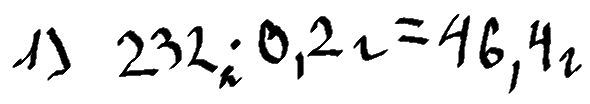 1) 232 · 0,2 г = 46,4 г